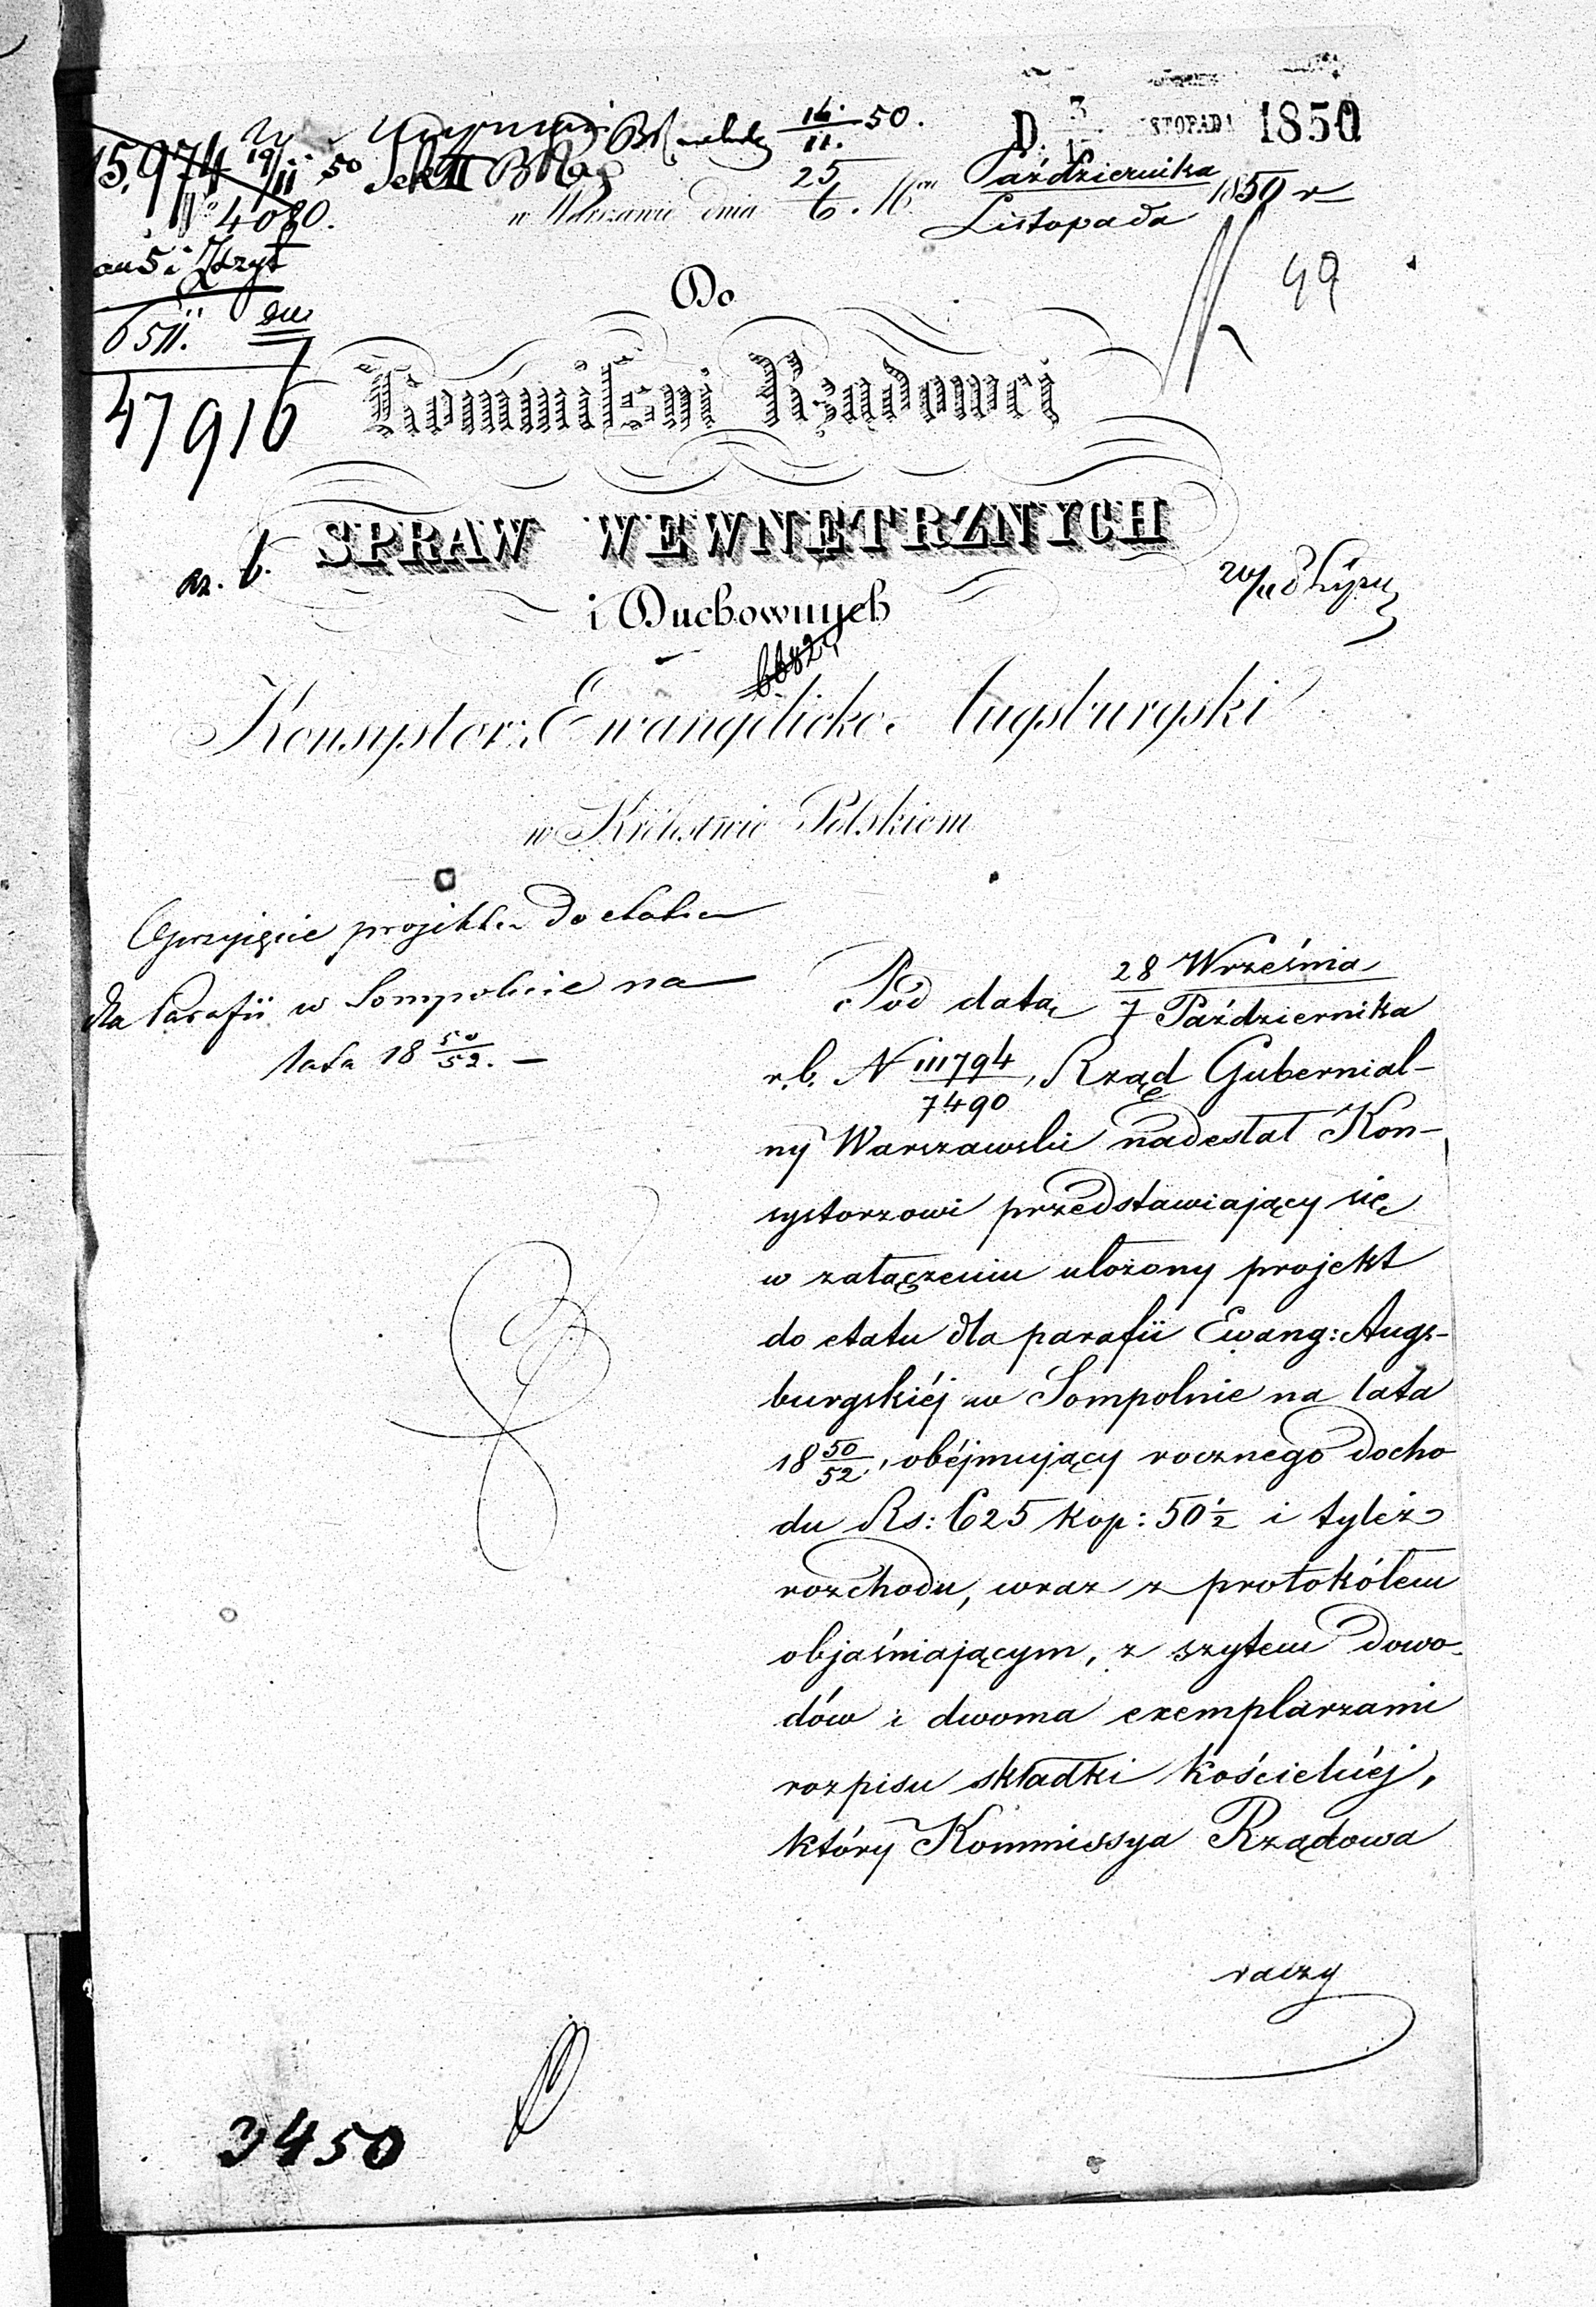 D. 3 1850
16/11. 50.
15,974 19/11 50 Sek II
No 4080.
w Warszawie dnia 25/6. Października/Listopada 1850 r
49
6511.
47916
Do
Kommissyi Rządowej
SPRAW WEWNĘTRZNYCH
i Duchownych
Konsystorz Ewangelicko Augsburgski
w Królestwie Polskiem
O przyjęcie projektu do etatu
dla Parafii w Sompolnie na
lata 18 50/52. —
Pod datą 28 Września/7 Października
r.b. N 111794/7490, Rząd Gubernial-
ny Warszawski nadesłał Kon-
systorzowi przedstawiający się
w załączeniu ułożony projekt
do etatu dla parafii Ewang: Augs-
burgskiéj w Sompolnie na lata
18 50/52, obéjmujący rocznego docho
du Rs: 625 kop: 50 1/2 i tyleż
rozchodu, wraz z protokółem
objaśniającym, z szytem dowo-
dów i dwoma exemplarzami
rozpisu składki kościelnéj,
który Kommissya Rządowa
raczy
3450